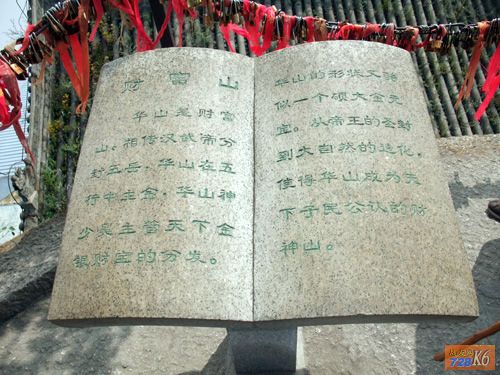 财富山
华山是财富
山。相传汉武帝分
封五岳，华山在五
行中主金，华山神
少昊主管天下金
银财宝的分发。
华山的形状又酷
似一个硕大金元
宝。从帝王的圣封
到大自然的造化，
使得华山成为天
下子民公认的财
神山。
K6